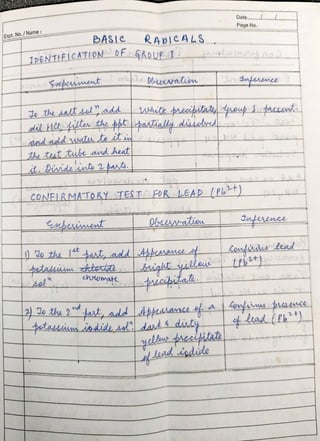 Date / /
Page No.
Expt. No. / Name :
BASIC RADICALS.
IDENTIFICATION OF GROUP I
Experiment Observation Inference
To the salt solⁿ, add White precipitates Group I present.
dil HCl, filter the ppt partially dissolved
and add water to it in
the test tube and heat
it. Divide into 2 parts.
CONFIRMATORY TEST FOR LEAD (Pb²⁺)
Experiment Observation Inference
1) To the 1ˢᵗ part, add Appearance of Confirms lead
potassium chlorite bright yellow (Pb²⁺)
chromate
solⁿ. precipitate.
2) To the 2ⁿᵈ part, add Appearance of a Confirms presence
potassium iodide solⁿ. dark & dirty of lead (Pb²⁺)
yellow precipitate
of lead iodide